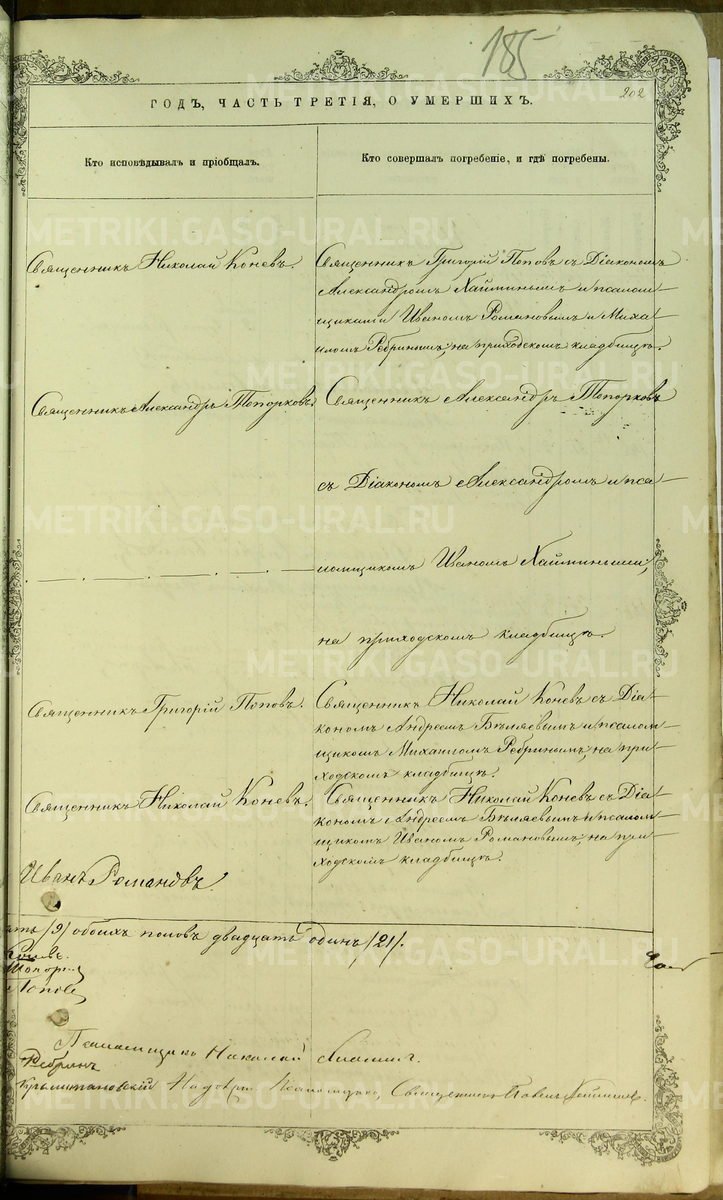 185
202
ГОДЪ, ЧАСТЬ ТРЕТІЯ, О УМЕРШИХЪ.
Кто исповѣдывалъ и пріобщалъ.
Кто совершалъ погребеніе, и гдѣ погребены.
Священникъ Николай Коневъ.
Священникъ Григорій Поповъ съ Діакономъ
Александромъ Хайминымъ и псалом-
щиками Иваномъ Романовымъ и Миха-
иломъ Ребринымъ, на приходскомъ кладбищѣ.
Священникъ Александръ Топорковъ.
Священникъ Александръ Топорковъ
съ Діакономъ Александромъ и пса-
ломщикомъ Иваномъ Хаймиными,
на приходскомъ кладбищѣ.
Священникъ Григорій Поповъ.
Священникъ Николай Коневъ съ Діа-
кономъ Андреемъ Бѣляевымъ и псалом-
щикомъ Михаиломъ Ребринымъ, на при-
ходскомъ кладбищѣ.
Священникъ Николай Коневъ.
Священникъ Николай Коневъ съ Діа-
кономъ Андреемъ Бѣляевымъ и псалом-
щикомъ Иваномъ Романовымъ, на при-
ходскомъ кладбищѣ.
Иванъ Романовъ
ять /9/ обоихъ половъ двадцать одинъ /21/.
Коневъ.
Топорк
Попов
Псаломщикъ Николай
Ребринъ
Псаломщика, Священникъ Павелъ
METRIKI.GASO-URAL.RU